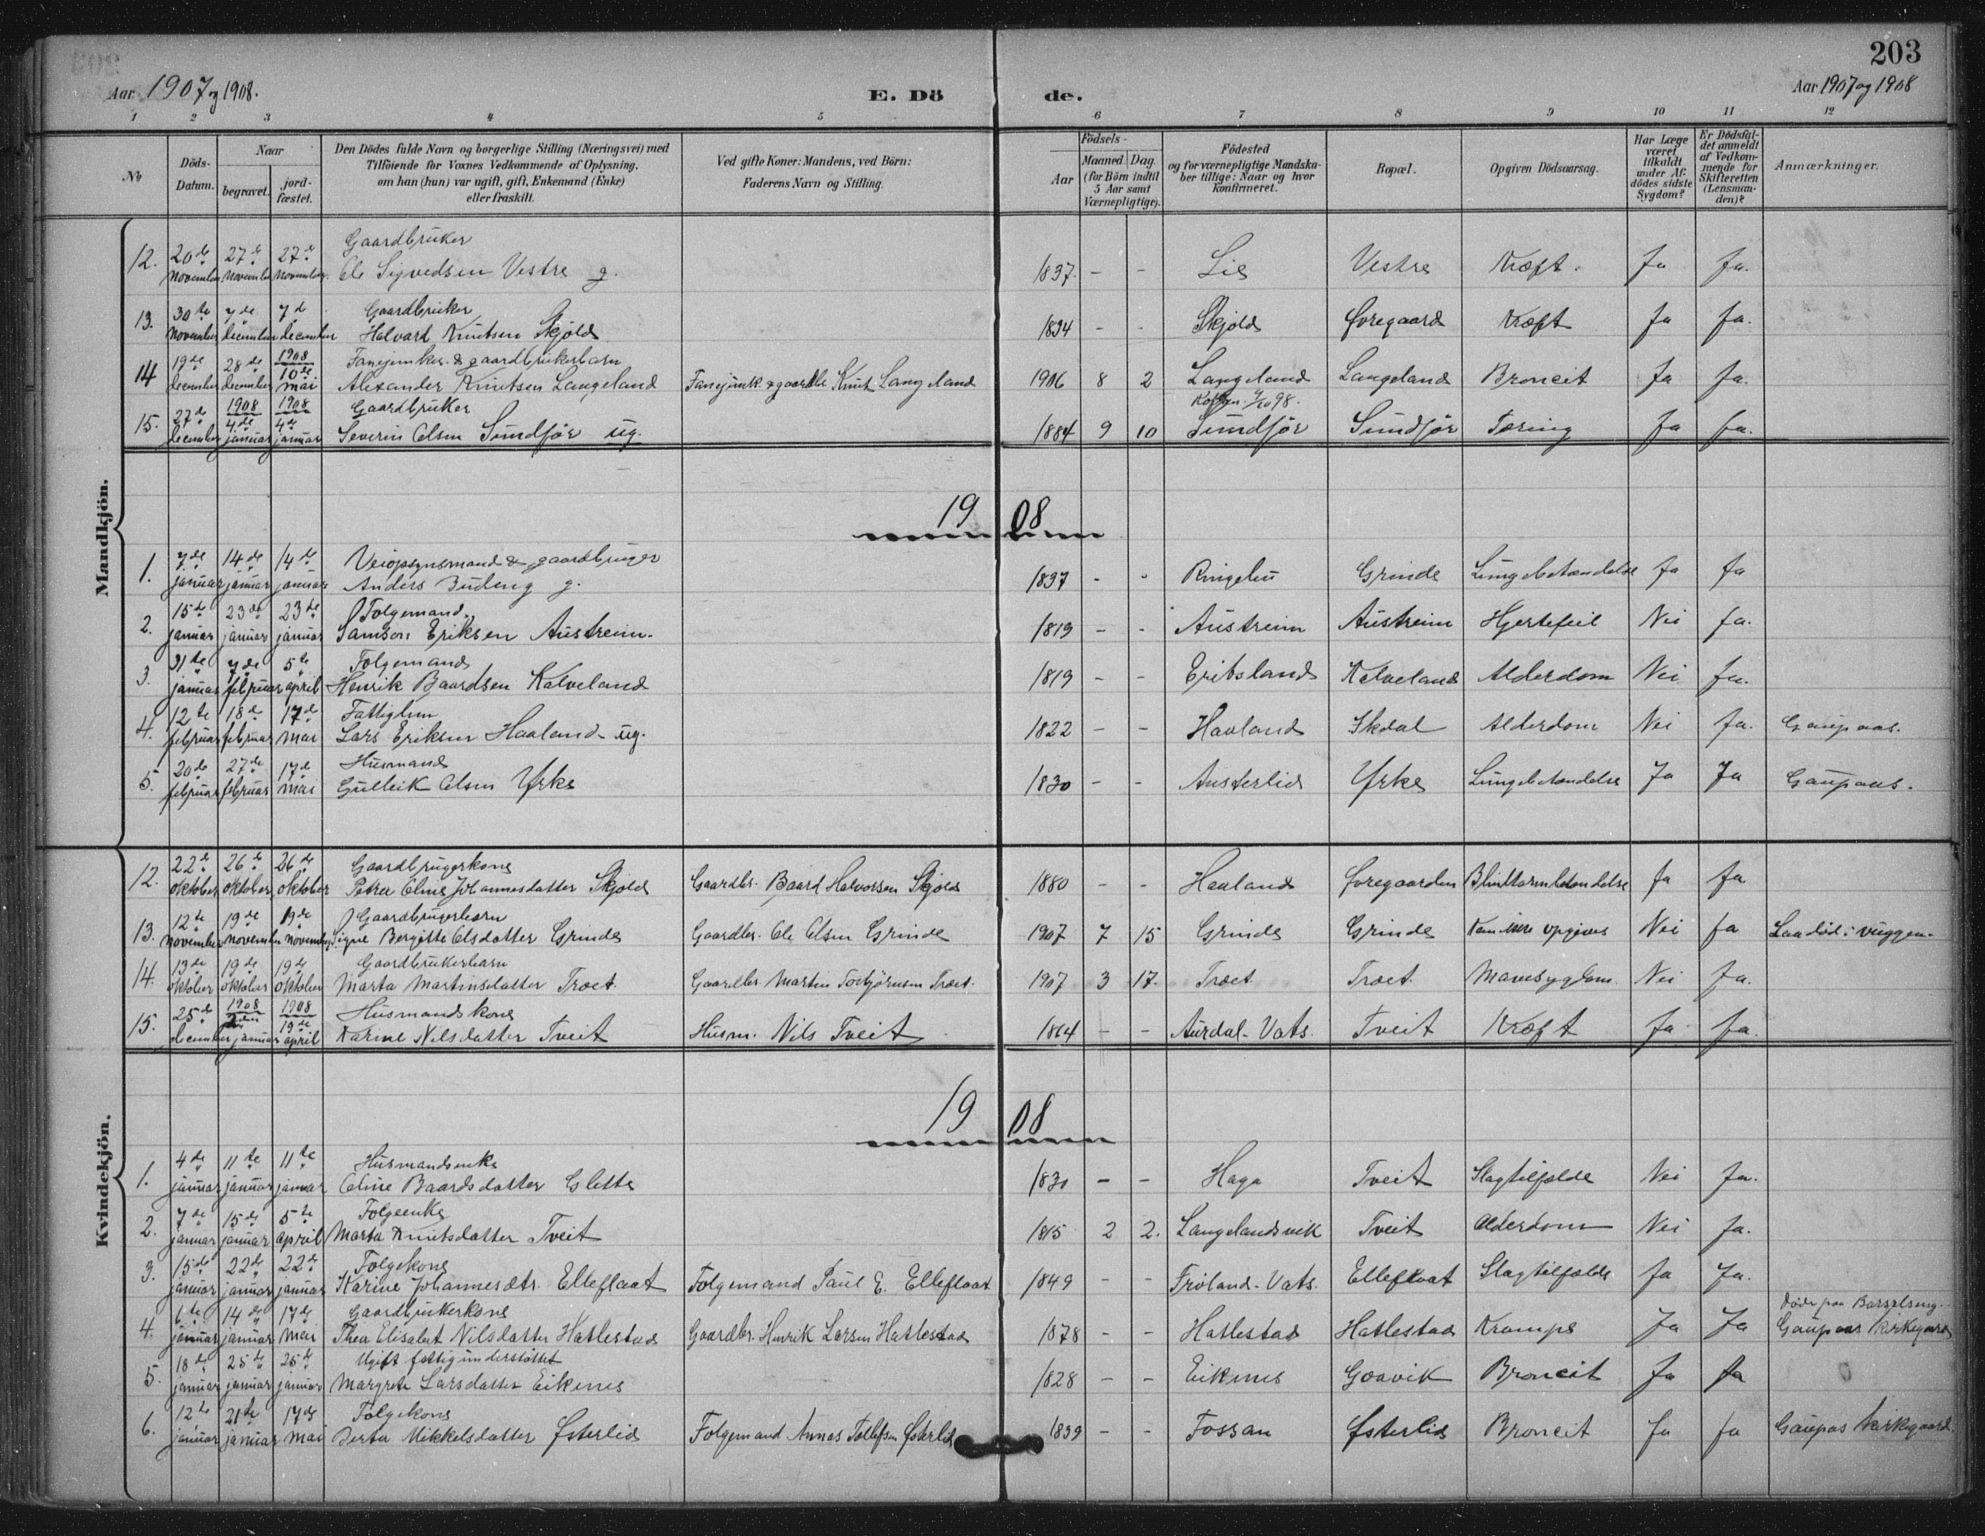 203
Aar 1907 og 1908.
E. Døde.
Aar 1907 og 1908
1 2 3 4 5 6 7 8 9 10 11 12
No
Döds-Datum.
Naar
begravet.
jord-fæstet.
Den Dödes fulde Navn og borgerlige Stilling (Næringsvei) med
Tilföiende for Voxnes Vedkommende af Oplysning,
om han (hun) var ugift, gift, Enkemand (Enke)
eller fraskilt.
Ved gifte Koner: Mandens, ved Börn:
Faderens Navn og Stilling.
Födsels-
Aar
Maaned. Dag.
(for Börn indtil
5 Aar samt
Værnepligtige).
Födested
og for værnepligtige Mandska-
ber tillige: Naar og hvor
konfirmeret.
Bopæl.
Opgiven Dödsaarsag.
Har Læge
været
tilkaldt
under Af-
dödes sidste
Sygdom?
Er Dödsfal-
det anmeldt
af Vedkom-
mende for
Skifteretten
(Lensman-
den)?
Anmærkninger.
Mandkjön.
12. 20de 27de 27de Gaardbruker
november november november Ole Sigvedsen Vestre g. 1837. - - Lie Vestre Kræft. Ja Ja.
13. 30te 7de 7d Gaardbruker
november december december Halvard Knutsen Skjold 1834 - - Skjold Øvregaard Kræft Ja Ja.
14 19de 28de 1908 10de Fanejunker & gaardbrukerbarn
december december mai Alexander Knutsen Langeland Fanejunk. & gaardbr Knut Langeland 1906 8 2 Langeland Langeland Broncit Ja Ja.
15. 27de 1908 1908 Gaardbruker 98.
december 4de januar 4de januar Severin Olsen Sundfør ug. 1884 9 10 Sundfør Sundfør Tæring Ja Ja.
1908
1. 7de 14de 14de Veiopsynsmand & gaardbruger
januar januar januar Anders Budeng g. 1837 - - Ringebu Grinde Lungebetændelse Ja Ja
2. 15de 23de 23de Folgemand
januar januar januar Samson Eriksen Austreim. 1819 - - Austreim Austreim Hjertefeil Nei Ja.
3. 31te 7de 5te Folgemand
januar februar april Henrik Baardsen Kalveland 1819 - - Eribsland Kalveland Alderdom Nei Ja.
4. 12te 18de 17de Fattiglem
februar februar mai Lars Eriksen Haaland ug. 1822 - - Haaland Ikdal Alderdom Nei Ja. Gaupaas.
5. 20de 27de 17de Husmand
februar februar mai Gulleik Olsen Yrke 1830 - - Austerlid Yrke Lungebetændelse Ja Ja Gaupaas.
Kvindekjön.
12. 22de 26de 26de Gaardbrugerkone
oktober oktober oktober Petra Oline Johannesdatter Skjold Gaardbr. Baard Halvorsen Skjold 1880 - - Haaland Øvregaarden Blindtarmbetændelse Ja Ja
13. 12te 19de 19de Gaardbrugerbarn
november november november Signe Bergitte Olsdatter Grinde Gaardbr. Ole Olsen Grinde 1907 7 15 Grinde Grinde Kan ikke opgives Nei Ja Laa død i vuggen.
14. 13de 19de 19de Gaardbrukerbarn
oktober oktober oktober Marta Martinsdatter Træet. Gaardbr. Martin Torbjørnsen Træet. 1907 3 17. Træet Træet. Mavesygdom Nei Ja.
15. 25de 1908 1908 19de Husmandskone
december januar april Karine Nilsdatter Tveit Husm. Nils Tveit 1864 - - Aurdal - Vats. Tveit Kræft Ja Ja.
1908
1. 4de 11te 11te Husmandsenke
januar januar januar Oline Baardsdatter Slette 1830 - - Haga Tveit Slagtilfælde Nei Ja.
2. 7de 15de 5te Folgeenke
januar januar april Marta Knutsdatter Tveit 1815 2 2. Langelandsvik Tveit Alderdom Nei Ja.
3. 15de 22de 22de Folgekone
januar januar januar Karine Johannesdtr. Elleflaat Folgemand Paul E. Elleflaat 1849 - - Frøland - Vats. Elleflaat Slagtilfælde Ja Ja.
4. 6te 14de 17de Gaardbrukerkone Døde paa Barselseng.
januar januar mai Thea Elisabet Nilsdatter Hatlestad Gaardbr. Henrik Larsen Hatlestad 1878 - - Hatlestad Hatlestad Krampe Ja Ja Gaupaas Kirkegaard
5. 18de 25de 25de Ugift fattigunderstøttet
januar januar januar Margrete Larsdatter Eikenes 1828 - - Eikenes Gaavik Broncit Ja Ja
6. 12te 21de 17de Folgekone
januar januar mai Berta Mikkelsdatter Østerlid Folgemand Annas Tollefsen Østerlid 1839 - - Fossan Østerlid Broncit Ja Ja Gaupas kirkegaard.